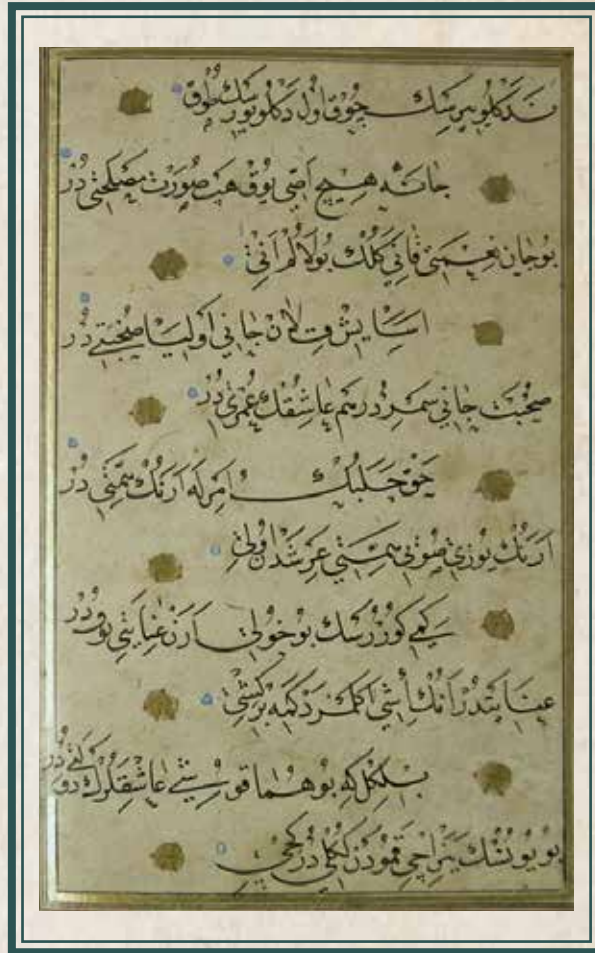 نَدَكلو ييرسك چوق اول دكلو يورسك طوق
جانه هيچ اصّى يوق هب صورت مصلحتى در
بو جان نعمتى قانى كلك بولالم انى
اسايش قلان جانى اوليا صحبتى در
صحبت جانى سمرد رهم عاشقك عمرى در
حق چلبك امرله ارنك همّتى در
ارنك يوزى صوتى همتى عرشدن اولى
كمى كوررسك بو خولى ارن عنايتى بودر
عنايتدر انك اشى اكمز دكمه بر كشى
بلكل كه بو هما قوشى عاشقلرك دولتى در
بو يونسك قمودن در كچى